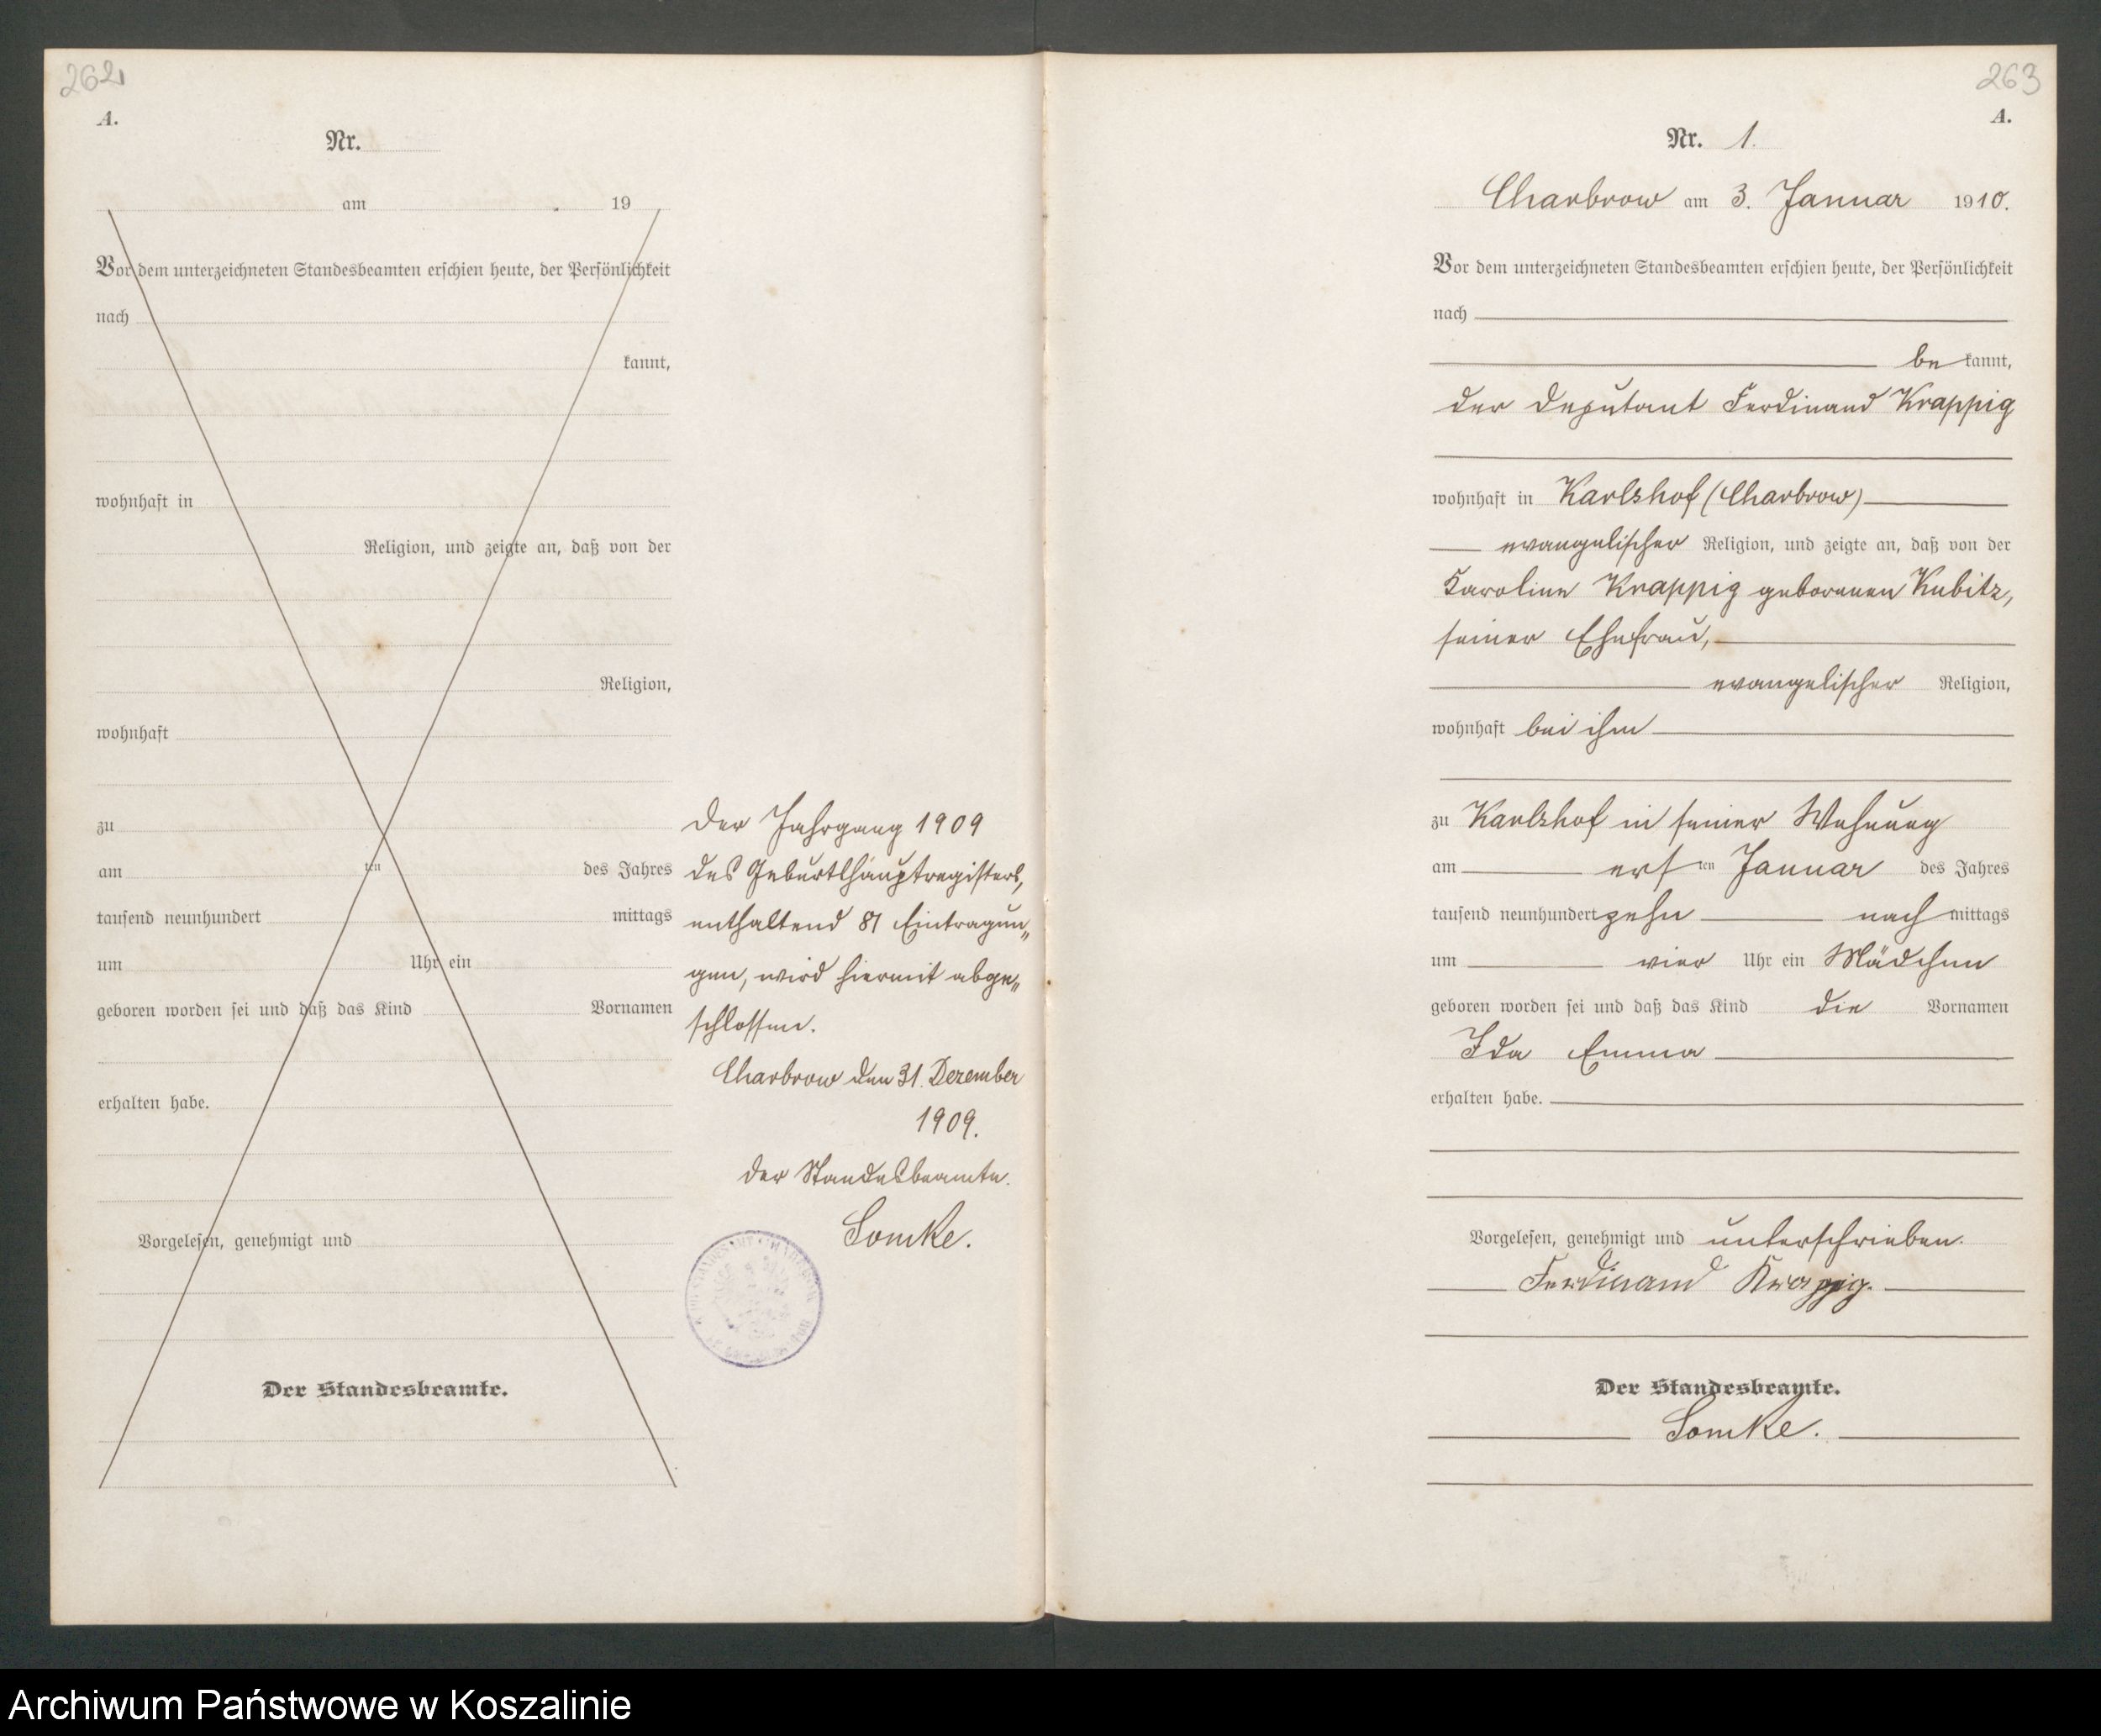 262
A.
Nr.
am 19
Vor dem unterzeichneten Standesbeamten erschien heute, der Persönlichkeit
nach
kannt,
wohnhaft in
Religion, und zeigte an, daß von der
Religion,
wohnhaft
zu
am ten des Jahres
tausend neunhundert mittags
um Uhr ein
geboren worden sei und daß das Kind Vornamen
erhalten habe.
Vorgelesen, genehmigt und
Der Standesbeamte.
Der Jahrgang 1909
des Geburtshauptregisters,
enthaltend 81 Eintragun„
gen, wird hiermit abge„
schlossen.
Charbrow den 31. Dezember
1909.
Der Standesbeamte.
Lomke.
263
A.
Nr. 1.
Charbrow am 3. Januar 1910.
Vor dem unterzeichneten Standesbeamten erschien heute, der Persönlichkeit
nach
be kannt,
der Deputant Ferdinand Krappig
wohnhaft in Karlshof (Charbrow)
evangelischer Religion, und zeigte an, daß von der
Karoline Krappig geborenen Kubitz,
seiner Ehefrau,
evangelischer Religion,
wohnhaft bei ihm
zu Karlshof in seiner Wohnung
am ersten Januar des Jahres
tausend neunhundert zehn nach mittags
um vier Uhr ein Mädchen
geboren worden sei und daß das Kind die Vornamen
Ida Emma
erhalten habe.
Vorgelesen, genehmigt und unterschrieben.
Ferdinand Krappig.
Der Standesbeamte.
Lomke.
Archiwum Państwowe w Koszalinie